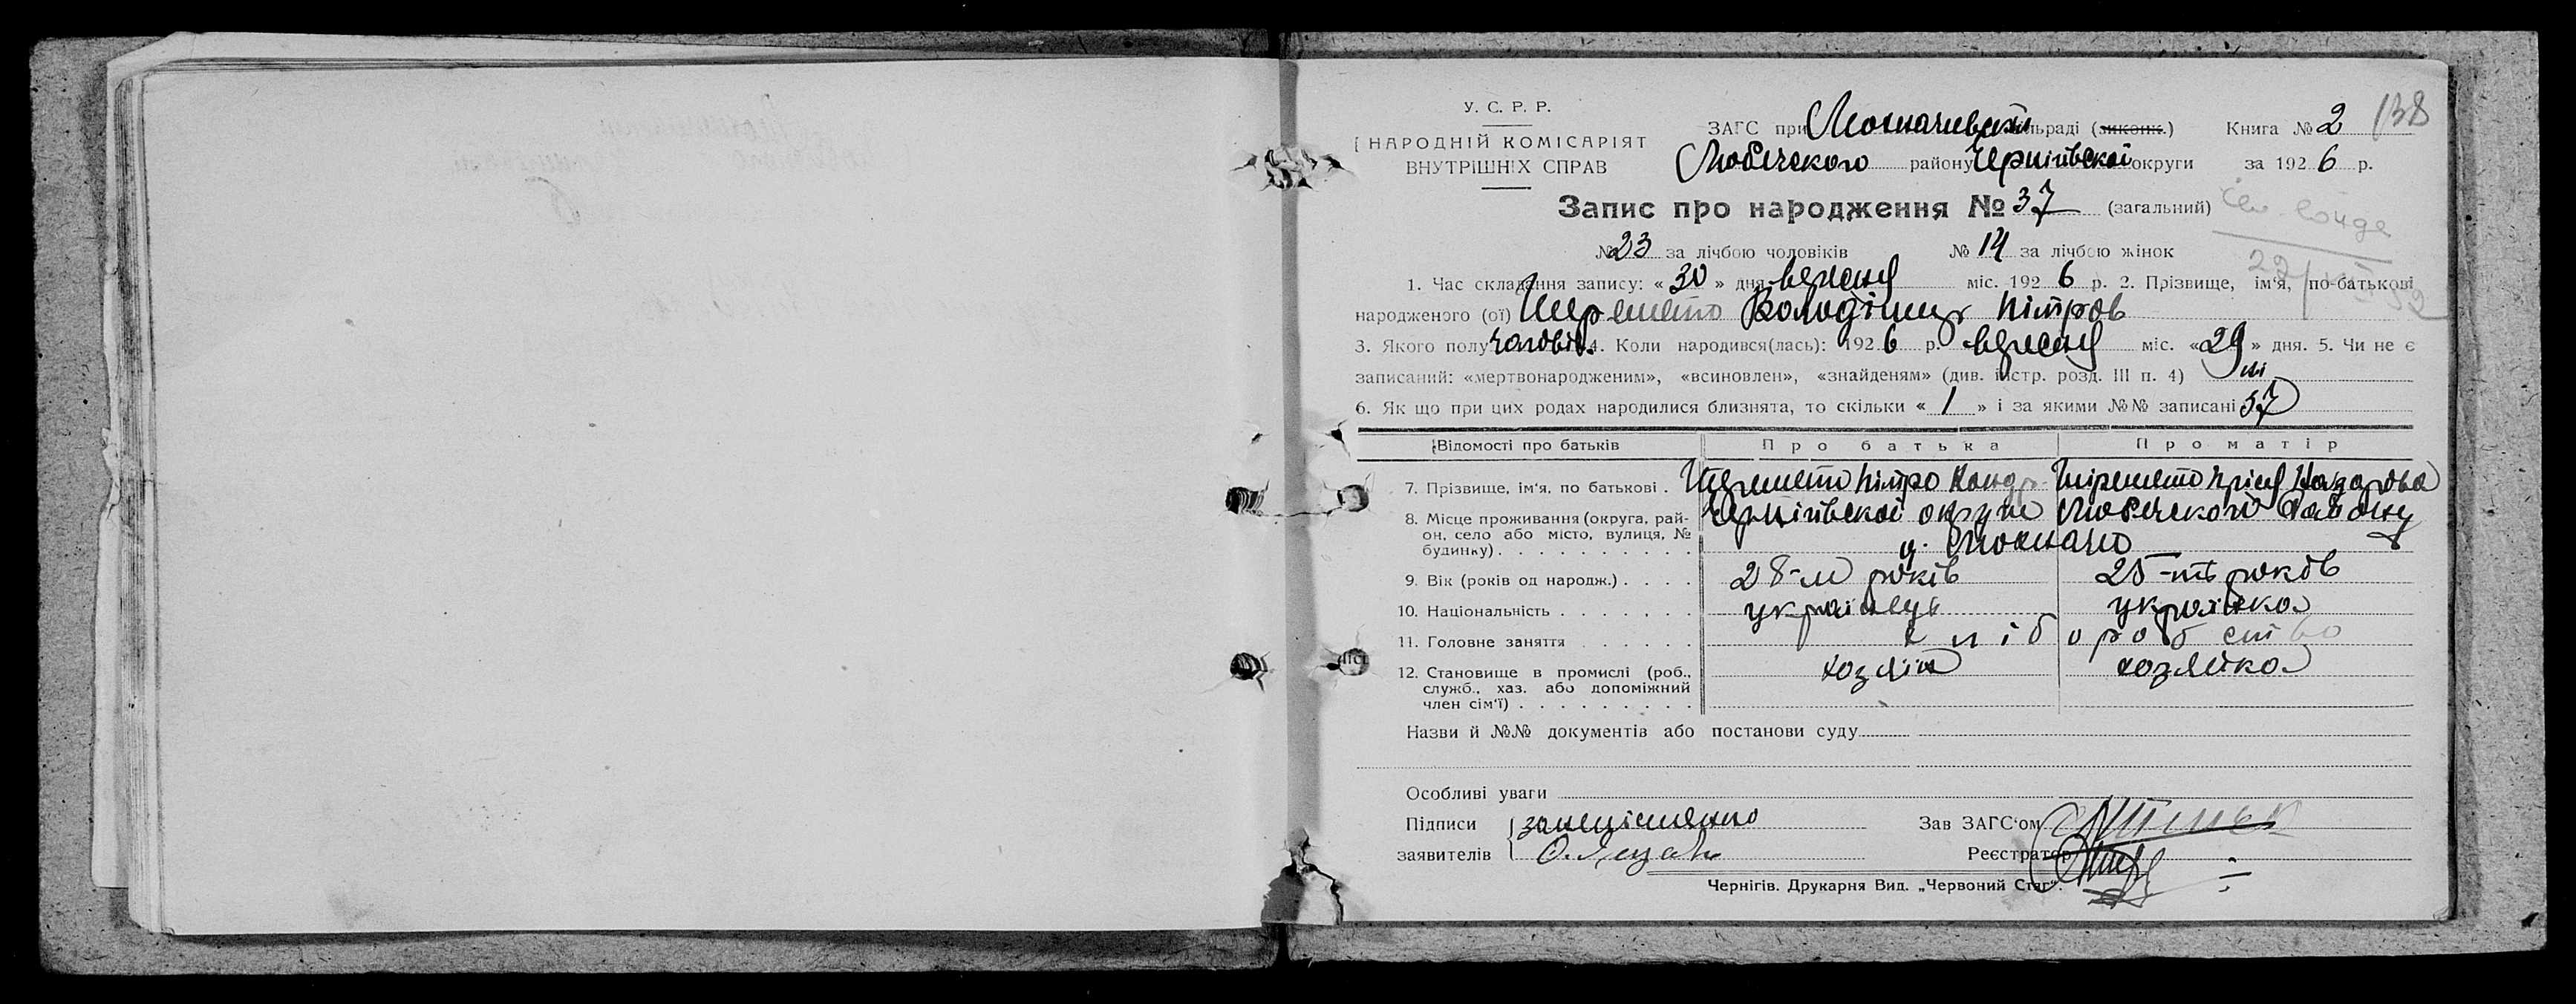 У. С. Р. Р.
НАРОДНІЙ КОМІСАРІЯТ
ВНУТРІШНІХ СПРАВ
138
ЗАГС при сільраді (виконк.) Книга № 2
Любечского району Чернігівскоі округи за 1926 р.
Запис про народження № 37 (загальний)
№ 23 за лічбою чоловіків № 14 за лічбою жінок
1. Час складання запису: « 30 » дня вересня міс. 1926 р. 2. Прізвище, ім'я, по-батькові
народженого (ої) Шеремето Володімир Пітров
3. Якого полу чоловіч. 4. Коли народився(лась): 1926 р. вересня міс. «29» дня. 5. Чи не є
записаний: «мертвонародженим», «всиновлен», «знайденям» (див. інстр. розд. III п. 4) ні
6. Як що при цих родах народилися близнята, то скільки « 1 » і за якими №№ записані 37
Відомості про батьків Про батька Про матір
7. Прізвище, ім'я, по батькові . Шеремето Пітро Конд. Шеремето Назарова
8. Місце проживання (округа, рай- Чернігівскоі округи Любечского району
он, село або місто, вулиця, №
будинку)
9. Вік (років од народж.) . . . . 28-м років 25-ть років
10. Національність . . . . . . . українець українка
11. Головне заняття . . . . . . хліборобство
12. Становище в промислі (роб., хозяін хозяйка
служб., хаз. або допоміжний
член сім'ї) . . . . . . . . .
Назви й №№ документів або постанови суду
Особливі уваги
Підписи
заявителів
Зав ЗАГС'ом
Реєстратор
Чернігів. Друкарня Вид. „Червоний Стяг".